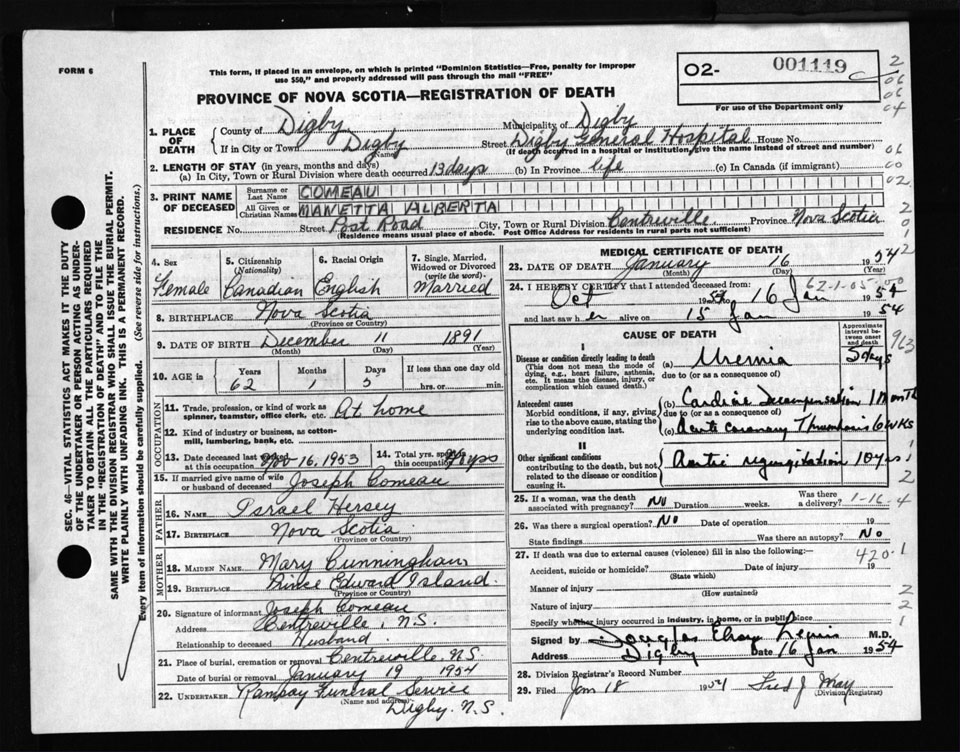 FORM 6
This form, if placed in an envelope, on which is printed "Dominion Statistics—Free, penalty for improper
use $50," and properly addressed will pass through the mail "FREE"
02- 001119
For use of the Department only
PROVINCE OF NOVA SCOTIA—REGISTRATION OF DEATH
1. PLACE OF DEATH
County of Digby Municipality of Digby
If in City or Town Digby Street Digby General Hospital House No.
(Name) (If death occurred in a hospital or institution, give the name instead of street and number)
2. LENGTH OF STAY (in years, months and days)
(a) In City, Town or Rural Division where death occurred 13 days (b) In Province life (c) In Canada (if immigrant)
3. PRINT NAME OF DECEASED
Surname or Last Name COMEAU
All Given or Christian Names MANETTA ALBERTA
RESIDENCE No. Street Post Road City, Town or Rural Division Centreville Province Nova Scotia
(Residence means usual place of abode. Post Office Address for residents in rural parts not sufficient)
4. Sex Female
5. Citizenship (Nationality) Canadian
6. Racial Origin English
7. Single, Married, Widowed or Divorced (write the word) Married
8. BIRTHPLACE Nova Scotia
(Province or Country)
9. DATE OF BIRTH December 11 1891
(Month) (Day) (Year)
10. AGE in Years Months Days If less than one day old
62 1 5 hrs. or min.
OCCUPATION
11. Trade, profession, or kind of work as spinner, teamster, office clerk, etc. At home
12. Kind of industry or business, as cotton-mill, lumbering, bank, etc.
13. Date deceased last worked at this occupation Nov 16, 1953
14. Total yrs. spent in this occupation
15. If married give name of wife or husband of deceased Joseph Comeau
FATHER
16. NAME Israel Hersey
17. BIRTHPLACE Nova Scotia
(Province or Country)
MOTHER
18. MAIDEN NAME Mary Cunningham
19. BIRTHPLACE Prince Edward Island
(Province or Country)
20. Signature of informant Joseph Comeau
Address Centreville, N.S.
Relationship to deceased Husband
21. Place of burial, cremation or removal Centreville, N.S.
Date of burial or removal January 19 1954
22. UNDERTAKER Rampay Funeral Service
(Name and address) Digby, N.S.
MEDICAL CERTIFICATE OF DEATH
23. DATE OF DEATH January 16 1954
(Month) (Day) (Year)
24. I HEREBY CERTIFY that I attended deceased from:
Oct 16 Jan 1954
and last saw her alive on 15 Jan 1954
CAUSE OF DEATH
Approximate interval between onset and death
I
Disease or condition directly leading to death (a) Uremia 5 days
(This does not mean the mode of dying, e.g., heart failure, asthenia, etc. It means the disease, injury, or complication which caused death.)
due to (or as a consequence of)
Antecedent causes
Morbid conditions, if any, giving rise to the above cause, stating the underlying condition last.
(b) Cardiac Decompensation 1 Month
due to (or as a consequence of)
(c) Acute Coronary Thrombosis 6 wks
II
Other significant conditions
contributing to the death, but not related to the disease or condition causing it.
Aortic regurgitation 10 yrs
25. If a woman, was the death associated with pregnancy? No Duration weeks. Was there a delivery?
1-16-4
26. Was there a surgical operation? No Date of operation 19
State findings Was there an autopsy? No
27. If death was due to external causes (violence) fill in also the following:— 420.1
Accident, suicide or homicide? Date of injury 19
(State which)
Manner of injury
(How sustained)
Nature of injury
Specify whether injury occurred in industry, in home, or in public place
Signed by Douglas M.D.
Address Digby Date 16 Jan 1954
28. Division Registrar's Record Number
29. Filed Jan 18 1954 Fred J May
(Division Registrar)
SEC. 46—VITAL STATISTICS ACT MAKES IT THE DUTY
OF THE UNDERTAKER OR PERSON ACTING AS UNDER-
TAKER TO OBTAIN ALL THE PARTICULARS REQUIRED
IN THE "REGISTRATION OF DEATH" AND TO FILE THE
SAME WITH THE DIVISION REGISTRAR WHO SHALL ISSUE THE BURIAL PERMIT.
WRITE PLAINLY WITH UNFADING INK. THIS IS A PERMANENT RECORD.
Every item of information should be carefully supplied. (See reverse side for instructions.)